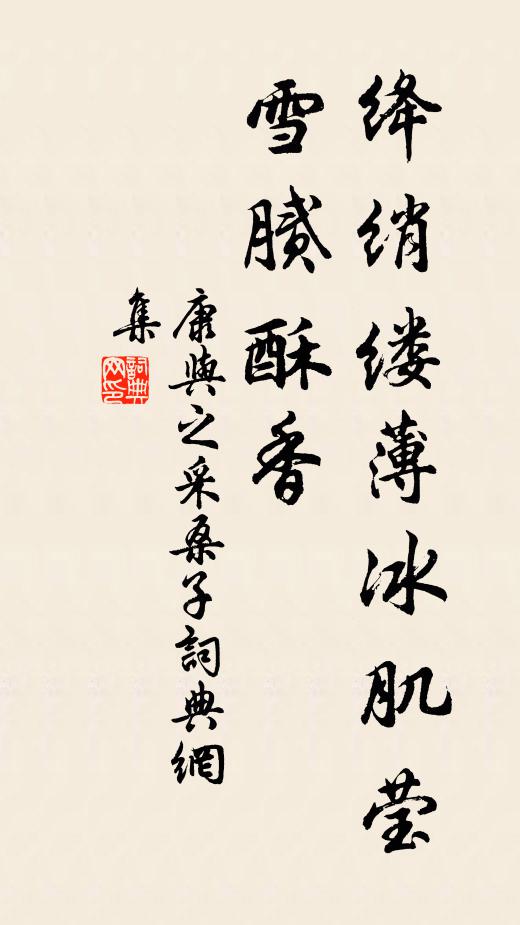 绛绡缕薄冰肌莹
雪腻酥香
康與之采桑子詞典網
集
詞典
网印